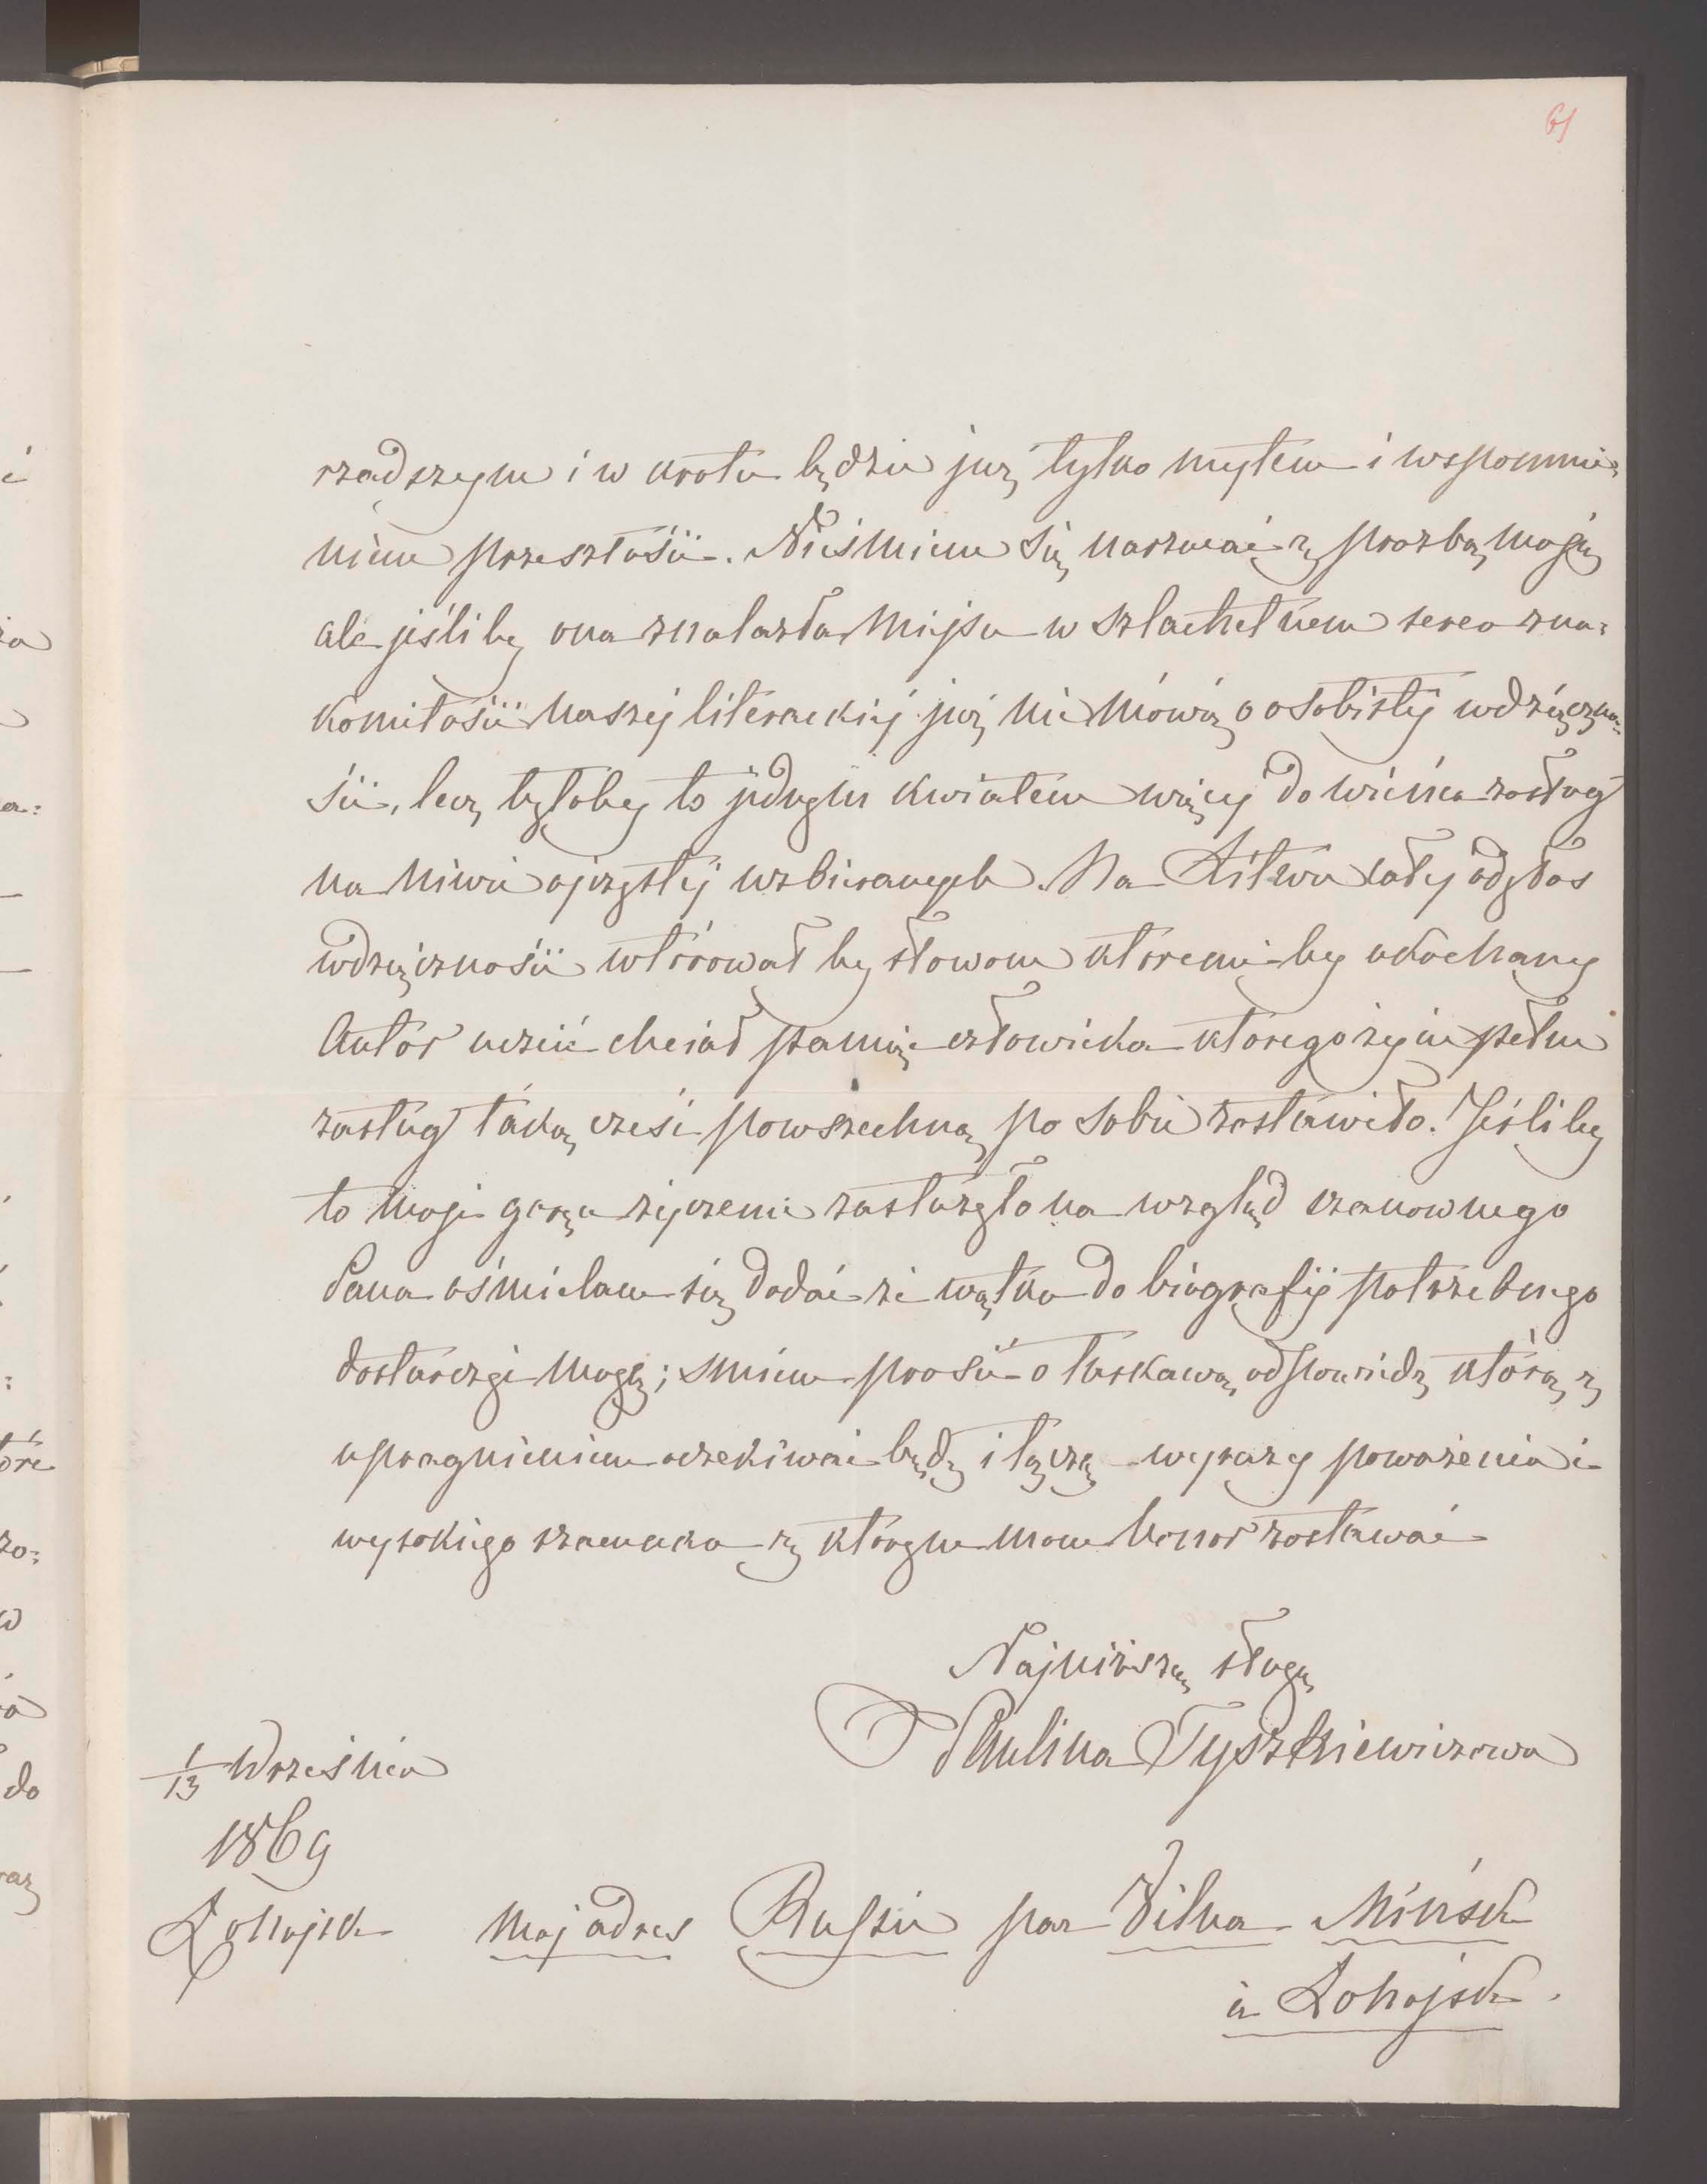 61
rzadszym i w krotce będzie już tylko mytem i wspomnie=
niem przeszłości. Nieśmiem się narzucać z prozbą moją
ale jeśli by ona znalazła miejsce w szlachetnem serca zna=
komitości naszej literackiej już nie mówię o osobistej wdzięczno=
ści, lecz byłoby to jednym kwiatem więcej do wieńca zasług
na niwie ojczystej uzbieranych. Na Litwie cały odgłos
wdzięczności wtórował by słowom któremi by ukochany
Autor uczcić chciał pamięć człowieka którego życie pełne
zasług taką cześć powszechną po sobie zostawiło. Jeśli by
to moje gorące życzenie zasłużyło na wzgląd szanownego
Pana ośmielam się dodać że wątku do biografij potrzebnego
dostarczyć mogę; śmiem prosić o łaskawą odpowiedź którą z
upragnieniem oczekiwać będę i łączę wyrazy poważenia i
wysokiego szacunku z którym mam honor zostawać
Najniższą sługą
Paulina Tyszkiewiczowa
1/13 Września
1869
Łohojsk
Moj adres Russie par Vilna Minsk
à Łohojsk.